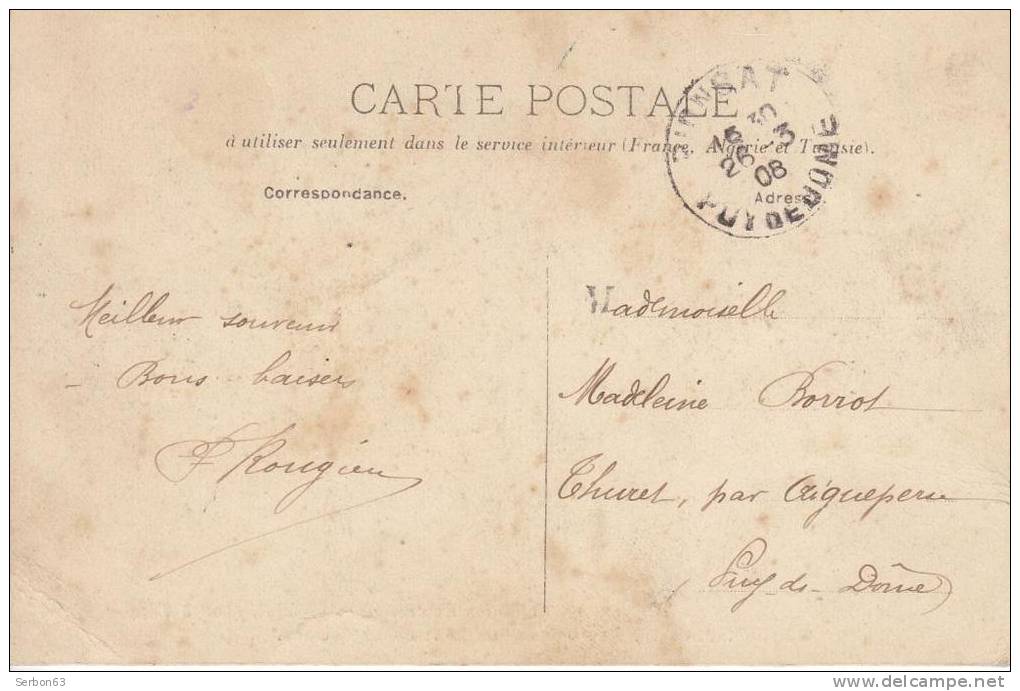 CARTE POSTALE
à utiliser seulement dans le service intérieur (France, Algérie et Tunisie).
Correspondance.
Adresse
15 30
26 - 3
08
PUY DE DOME
Meilleur souvenir
- Bons baisers
F Rougier
Mademoiselle
Madeleine Borrot
Thuret, par Aigueperse
(Puy-de-Dôme)
Serbon63
www.delcampe.net